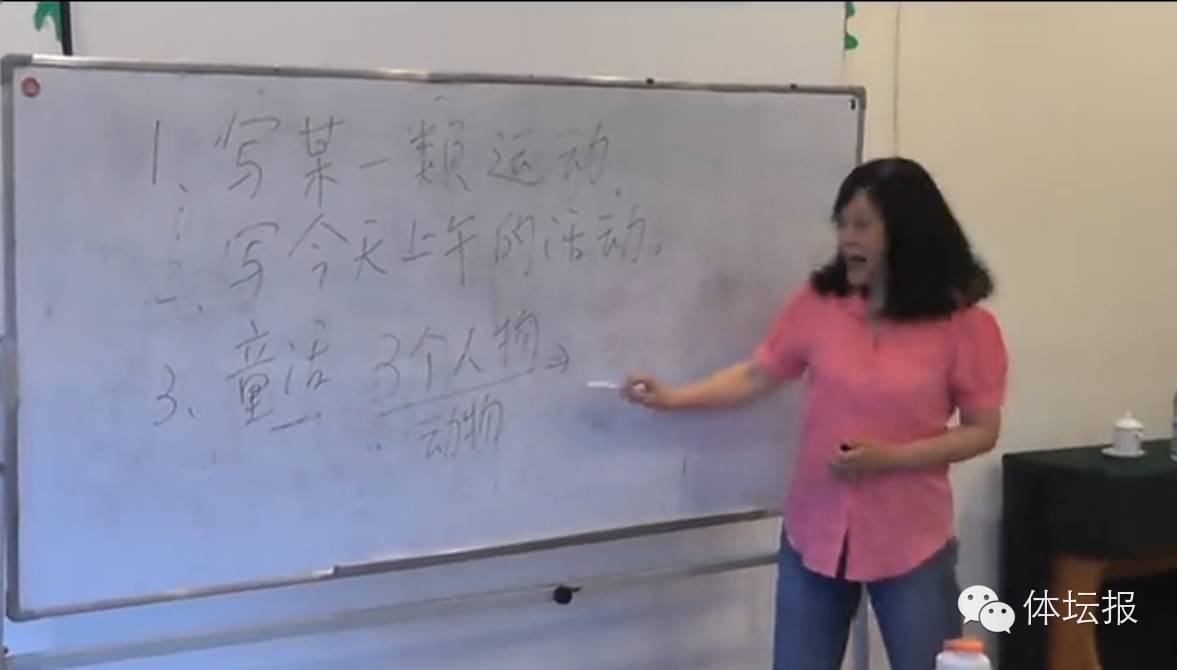 1、写某一類运动.
二、写今天上午的活动.
3、童话 3个人物→
动物
体坛报